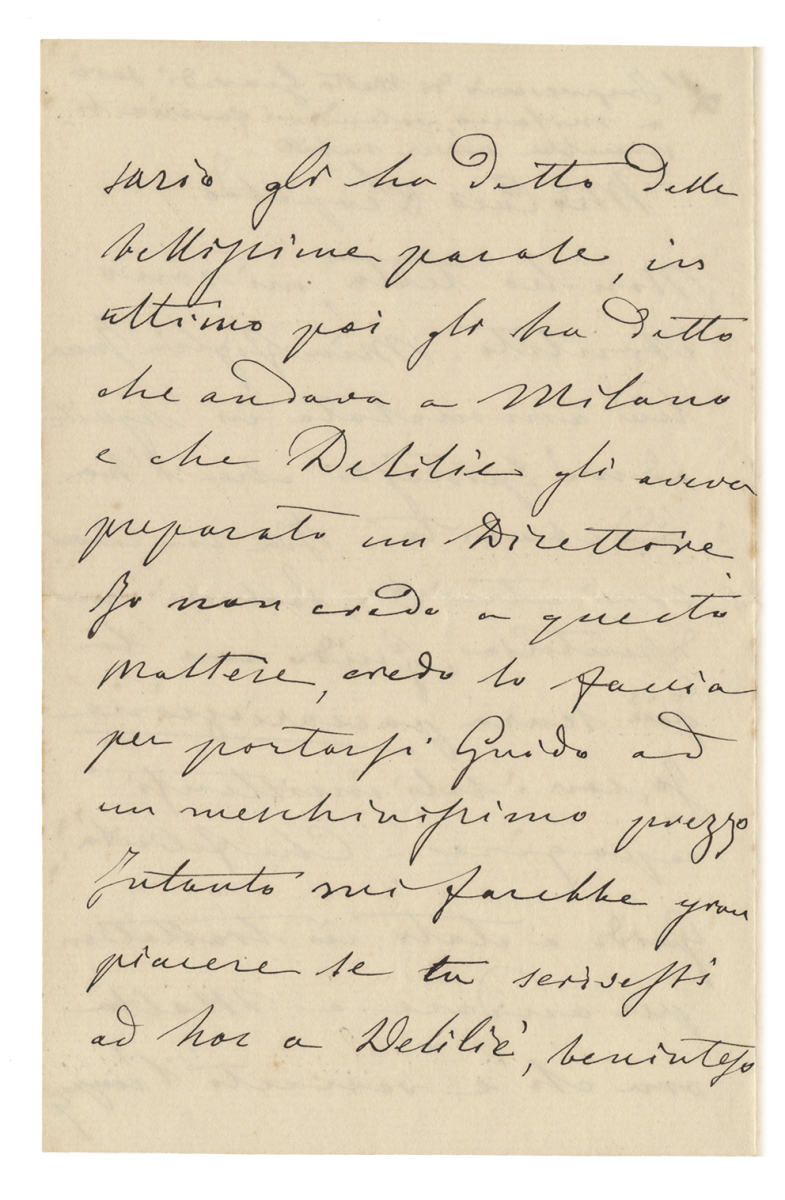 sario gli ha detto delle
bellissime parole, in
ultimo poi gli ha detto
che andava a Milano
e che Deliliers gli aveva
preparato un Direttore
Io non credo a questo
mattese, credo lo faccia
per portarsi Guido ad
un meschinissimo prezzo
Intanto mi farebbe gran
piacere se tu scrivessi
ad hoc a Delilié, beninteso